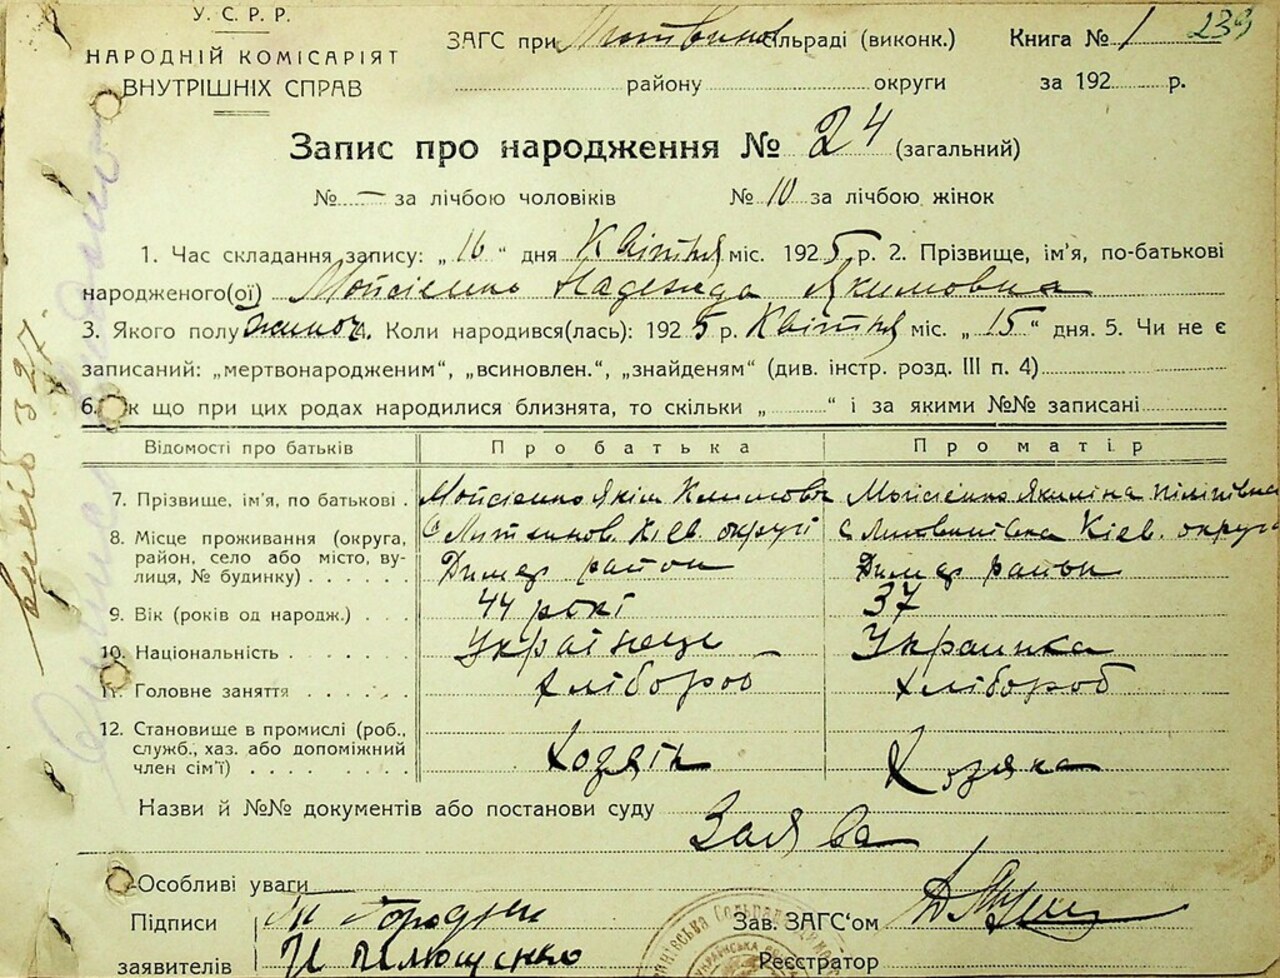 У. С. Р. Р.
НАРОДНІЙ КОМІСАРІЯТ
ВНУТРІШНІХ СПРАВ
ЗАГС при Литвинов сільраді (виконк.) Книга № 1 239
району округи за 192 р.
Запис про народження № 24 (загальний)
№ — за лічбою чоловіків № 10 за лічбою жінок
1. Час складання запису: „ 16 “ дня Квітня міс. 1925 р. 2. Прізвище, ім'я, по-батькові
народженого(ої) Мойсієнко Надежда Якимовна
3. Якого полу жіноч. 4. Коли народився(лась): 1925 р. Квітня міс. „ 15 “ дня. 5. Чи не є
записаний: „мертвонародженим“, „всиновлен.“, „знайденям“ (див. інстр. розд. III п. 4)
6. к що при цих родах народилися близнята, то скільки „ “ і за якими №№ записані
Відомості про батьків Про батька Про матір
7. Прізвище, ім'я, по батькові . Мойсієнко Якім Климовъ Мойсієнко Якилина Пілипівна
8. Місце проживання (округа, С Литвинов. Київ. округі с Литвинівка Кіев. округи
район, село або місто, ву-
лиця, № будинку) . . . . . Димер район Димер район
9. Вік (років од народж.) . . . 44 рокі 37
10. Національність . . . . . . Українець Украинка
11. Головне заняття . . . . . хлібороб хлібороб
12. Становище в промислі (роб.,
служб., хаз. або допоміжний
член сім'ї) . . . . . . . Хозяїн Хозяка
Назви й №№ документів або постанови суду Заява
Особливі уваги
Підписи Зав. ЗАГС'ом
заявителів Реєстратор